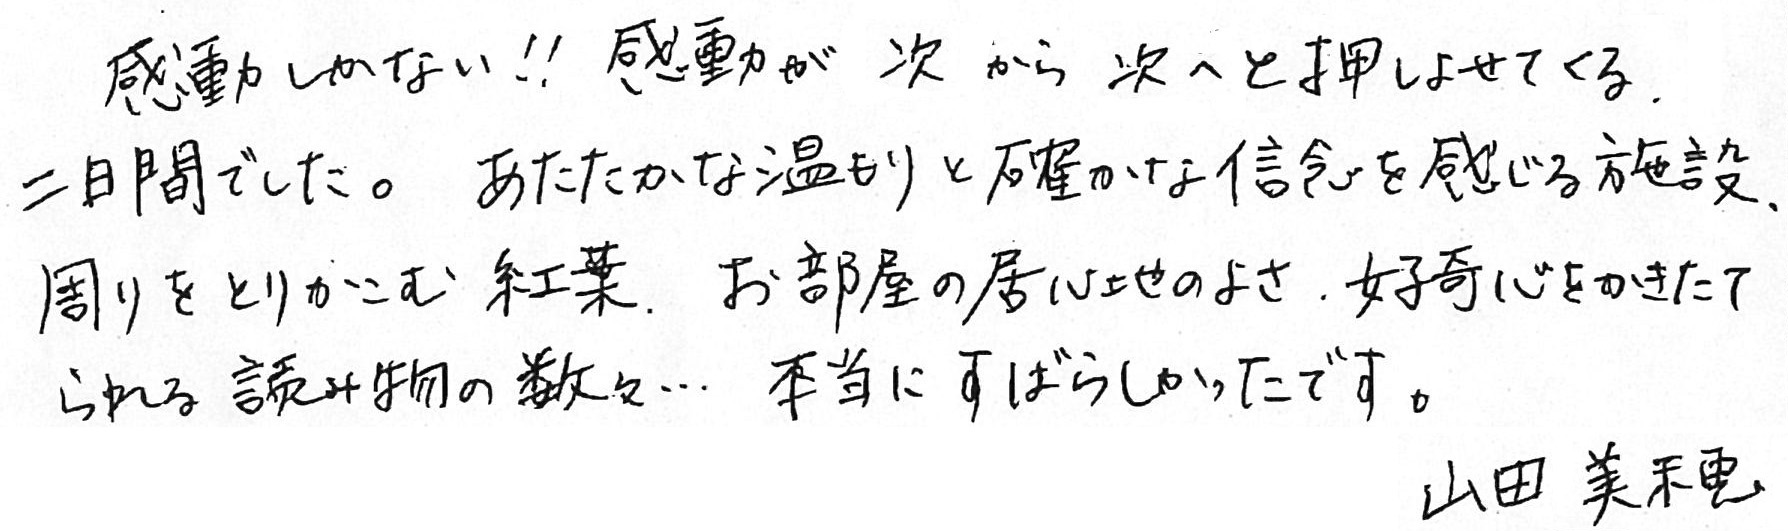 感動しかない!! 感動が 次 から 次へと押しよせてくる.
二日間でした。 あたたかな温もりと確かな信念を感じる施設、
周りをとりかこむ 紅葉. お部屋の居心地のよさ. 好奇心をかきたて
られる 読み物の数々… 本当にすばらしかったです。
山田 美穂